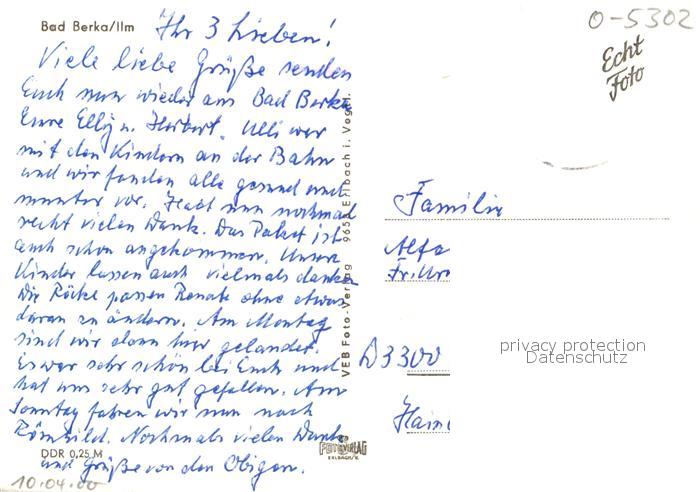 Bad Berka/Ilm
Ihr 3 Lieben!
Viele liebe Grüße senden
Euch nun wieder aus Bad Berka
Eure Elly u. Herbert. Ulli war
mit den Kindern an der Bahn
und wir fanden alle gesund und
munter vor. Habt nun nochmal
recht vielen Dank. Das Paket ist
auch schon angekommen. Unsere
Kinder lassen auch vielmals danken
Die Röcke passen Renate ohne etwas
daran zu ändern. Am Montag
sind wir dann hier gelandet.
Es war sehr schön bei Euch und
hat uns sehr gut gefallen. Am
Sonntag fahren wir nun nach
Römhild. Nochmals vielen Dank
und Grüße von den Obigen.
DDR 0,25 M
10.04.00
VEB Foto-Verlag 965 Erlbach i. Vogtl.
FOTO VERLAG
ERLBACH/V.
O-5302
Echt
Foto
Familie
Alfr
Fr.
D3300
Hain
privacy protection
Datenschutz